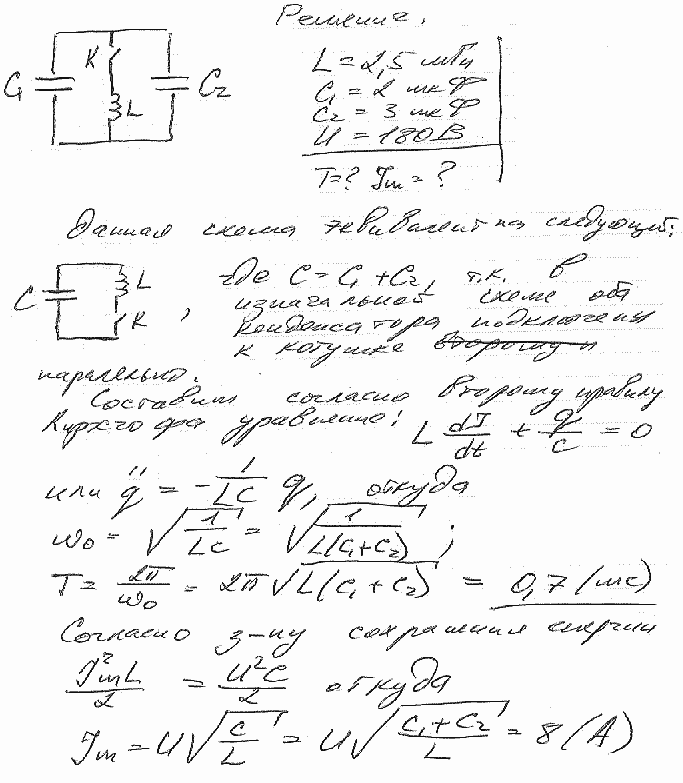 Решение.
K
C₁ L C₂
L = 2,5 мГн
C₁ = 2 мкФ
C₂ = 3 мкФ
U = 180 В
T = ? Jm = ?
Данная схема эквивалентна следующей:
C L K , где C = C₁ + C₂, т.к. в
изначальной схеме оба
конденсатора подключены
к катушке второму и
паралельно.
Составим согласно второму правилу
Кирхгофа уравнение: L dJ/dt + q/c = 0
или q̈ = - 1/LC q, откуда
ω₀ = √(1/LC) = √(1/L(C₁+C₂)) ;
T = 2π/ω₀ = 2π√(L(C₁+C₂)) = 0,7 (мс)
Согласно з-ну сохранения энергии
J²mL/2 = U²C/2 откуда
Jm = U√(C/L) = U√((C₁+C₂)/L) = 8 (А)